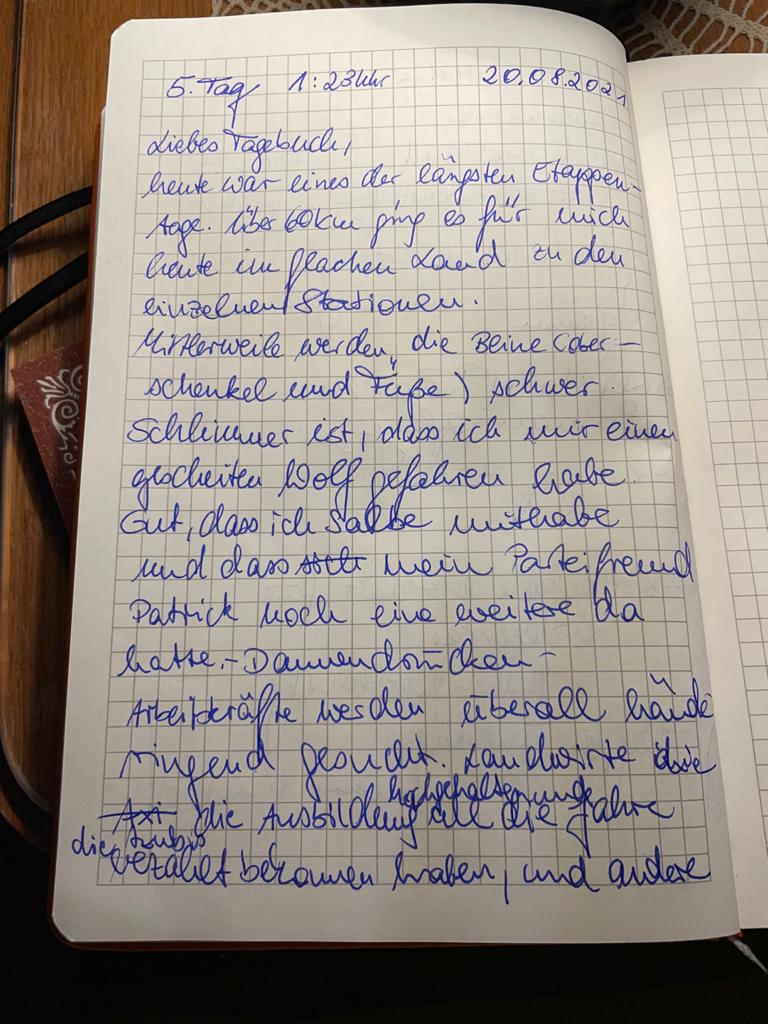 5. Tag 1:23 Uhr 20.08.2021
Liebes Tagebuch,
heute war eines der längsten Etappen-
tage. Über 60km ging es für mich
heute im flachen Land zu den
einzelnen Stationen.
Mittlerweile werden die Beine (Ober-
schenkel und Füße) schwer.
Schlimmer ist, dass ich mir einen
gescheiten Wolf gefahren habe.
Gut, dass ich Salbe mithabe
und dass mein Parteifreund
Patrick noch eine weitere da
hatte. - Daumendrücken -
Arbeitskräfte werden überall hände
ringend gesucht. Landwirte die
hochgehalten und
die Ausbildung all die Jahre
die Azubis
bezahlt bekommen haben, und andere